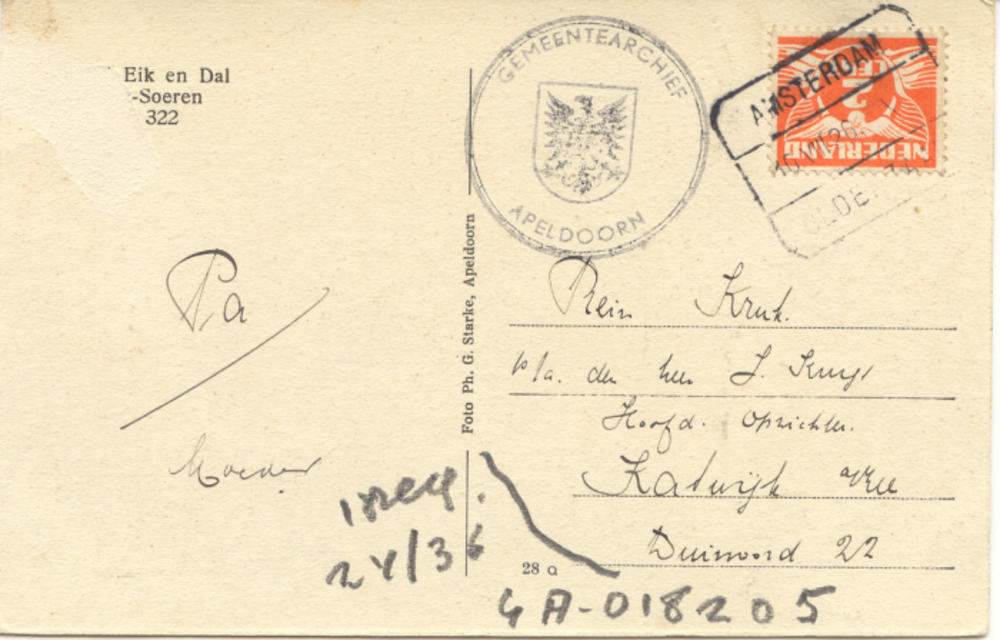 Eik en Dal
-Soeren
322
Pa
Moeder
Foto Ph. G. Starke, Apeldoorn
GEMEENTEARCHIEF
APELDOORN
NEDERLAND
2
CENT
AMSTERDAM
10 VI 26
OLDE
Rein Kruk.
p/a. den heer J.
Hoofd. Opzichter.
Katwijk a/Zee
Duinoord 22
24/36
28 a
4A-018205